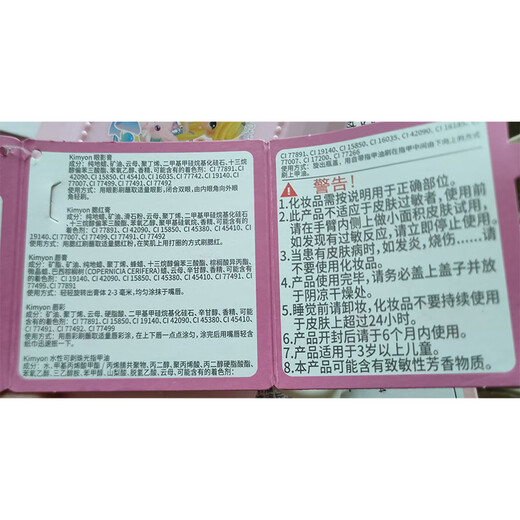 Kimyon 眼影膏
成分：纯地蜡、矿油、云母、聚丁烯、二甲基甲硅烷基化硅石、十三烷
醇偏苯三酸酯、苯氧乙醇、香精、可能含有的着色剂：CI 77891, CI
42090, CI 15850, CI 45410, CI 16035, CI 77742, CI 19140, CI
77007, CI 77499, CI 77491, CI 77492
使用方式：用眼影刷蘸取适量眼影，闭合双眼，由内眼角向外眼
角轻刷。
Kimyon 腮红膏
成分：纯地蜡、矿油、滑石粉、云母、聚丁烯、二甲基甲硅烷基化硅石、
十三烷醇偏苯三酸酯、苯氧乙醇、聚甲基硅氧烷、香精、可能含有的着
色剂：CI 77891, CI 15850, CI 42090, CI 45380, CI 45410, CI
19140, CI 77007, CI 77499, CI 77491, CI 77492
使用方式：用腮红刷蘸取适量腮红粉，在笑肌上用打圈的方式刷腮红。
Kimyon 唇膏
成分：矿脂、矿油、纯地蜡、聚丁烯、蜂蜡、十三烷醇偏苯三酸酯、棕榈酸异丙酯、
微晶蜡、巴西棕榈树 (COPERNICIA CERIFERA) 蜡、云母、辛甘醇、香精、可能含有
的着色剂：CI 19140, CI 42090, CI 15850, CI 45380, CI 45410, CI 77491, CI
77499, CI 77891
使用方式：轻轻旋转出膏体 2-3 毫米，均匀涂抹于嘴唇。
Kimyon 唇彩
成分：矿油、聚丁烯、云母、硬脂酸、二甲基甲硅烷基化硅石、辛甘醇、香精、可能含有
的着色剂：CI 77891, CI 15850, CI 19140, CI 42090, CI 45380, CI 45410, CI
77491, CI 77492, CI 77499
使用方式：用唇刷蘸取适量唇彩，在上下唇一点点涂匀，涂完后用嘴唇轻含
纸巾后遮断一下。
Kimyon 水性可剥珠光指甲油
成分：水、甲基丙烯酸甲酯 / 丙烯腈共聚物、丙二醇、聚丙烯酸、丙二醇硬脂酸酯、
苯氧乙醇、三乙醇胺、苯甲醇、山梨酸、脱氢乙酸、云母、可能含有的着色剂：
CI 77891, CI 19140, CI 15850, CI 16035, CI 42090, CI 16185,
77007, CI 17200, CI 77266
刷上甲油。
警告！
1. 化妆品需按说明用于正确部位。
2. 此产品不适应于皮肤过敏者，使用前
请在手臂内侧上做小面积皮肤试用，
如发现有过敏反应，请立即停止使用。
3. 当患有皮肤病时，如发炎，烧伤……请
不要使用化妆品。
4. 产品使用完毕，请务必盖上盖子并放
于阴凉干燥处。
5. 睡觉前请卸妆，化妆品不要持续使用
于皮肤上超过24小时。
6. 产品开封后请于6个月内使用。
7. 产品适用于3岁以上儿童。
8. 本产品可能含有致敏性芳香物质。